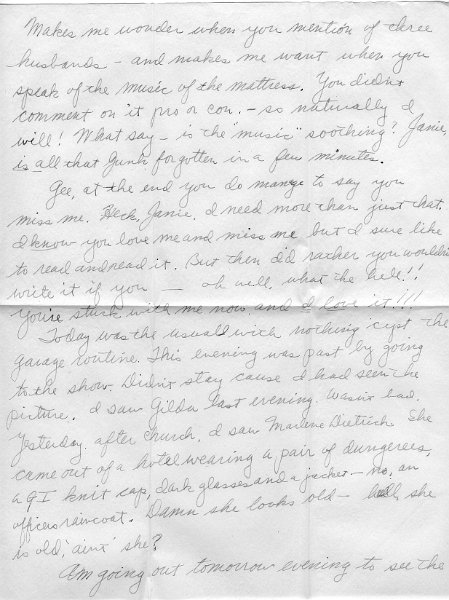 Makes me wonder when you mention of three
husbands - and makes me want when you
speak of the music of the mattress. You didn't
comment on it pro or con. - so naturally I
will! What say - is the "music" soothing? Janie,
is all that Gunk forgotten in a few minutes.
Gee, at the end you do manage to say you
miss me. Heck, Janie, I need more than just that.
I know you love me and miss me but I sure like
to read and read it. But then I'd rather you wouldn't
write it if you — oh well, what the hell!!
You're stuck with me now and I love it!!!
Today was the usual with nothing 'cept the
garage routine. This evening was past by going
to the show. Didn't stay cause I had seen the
picture. I saw Gilda last evening. Wasn't bad.
Yesterday after church, I saw Marlene Dietrich. She
came out of a hotel wearing a pair of dungerees,
a GI knit cap, dark glasses and a jacket - no, an
officers raincoat. Damn she looks old - hell she
is old, 'aint' she?
Am going out tomorrow evening to see the